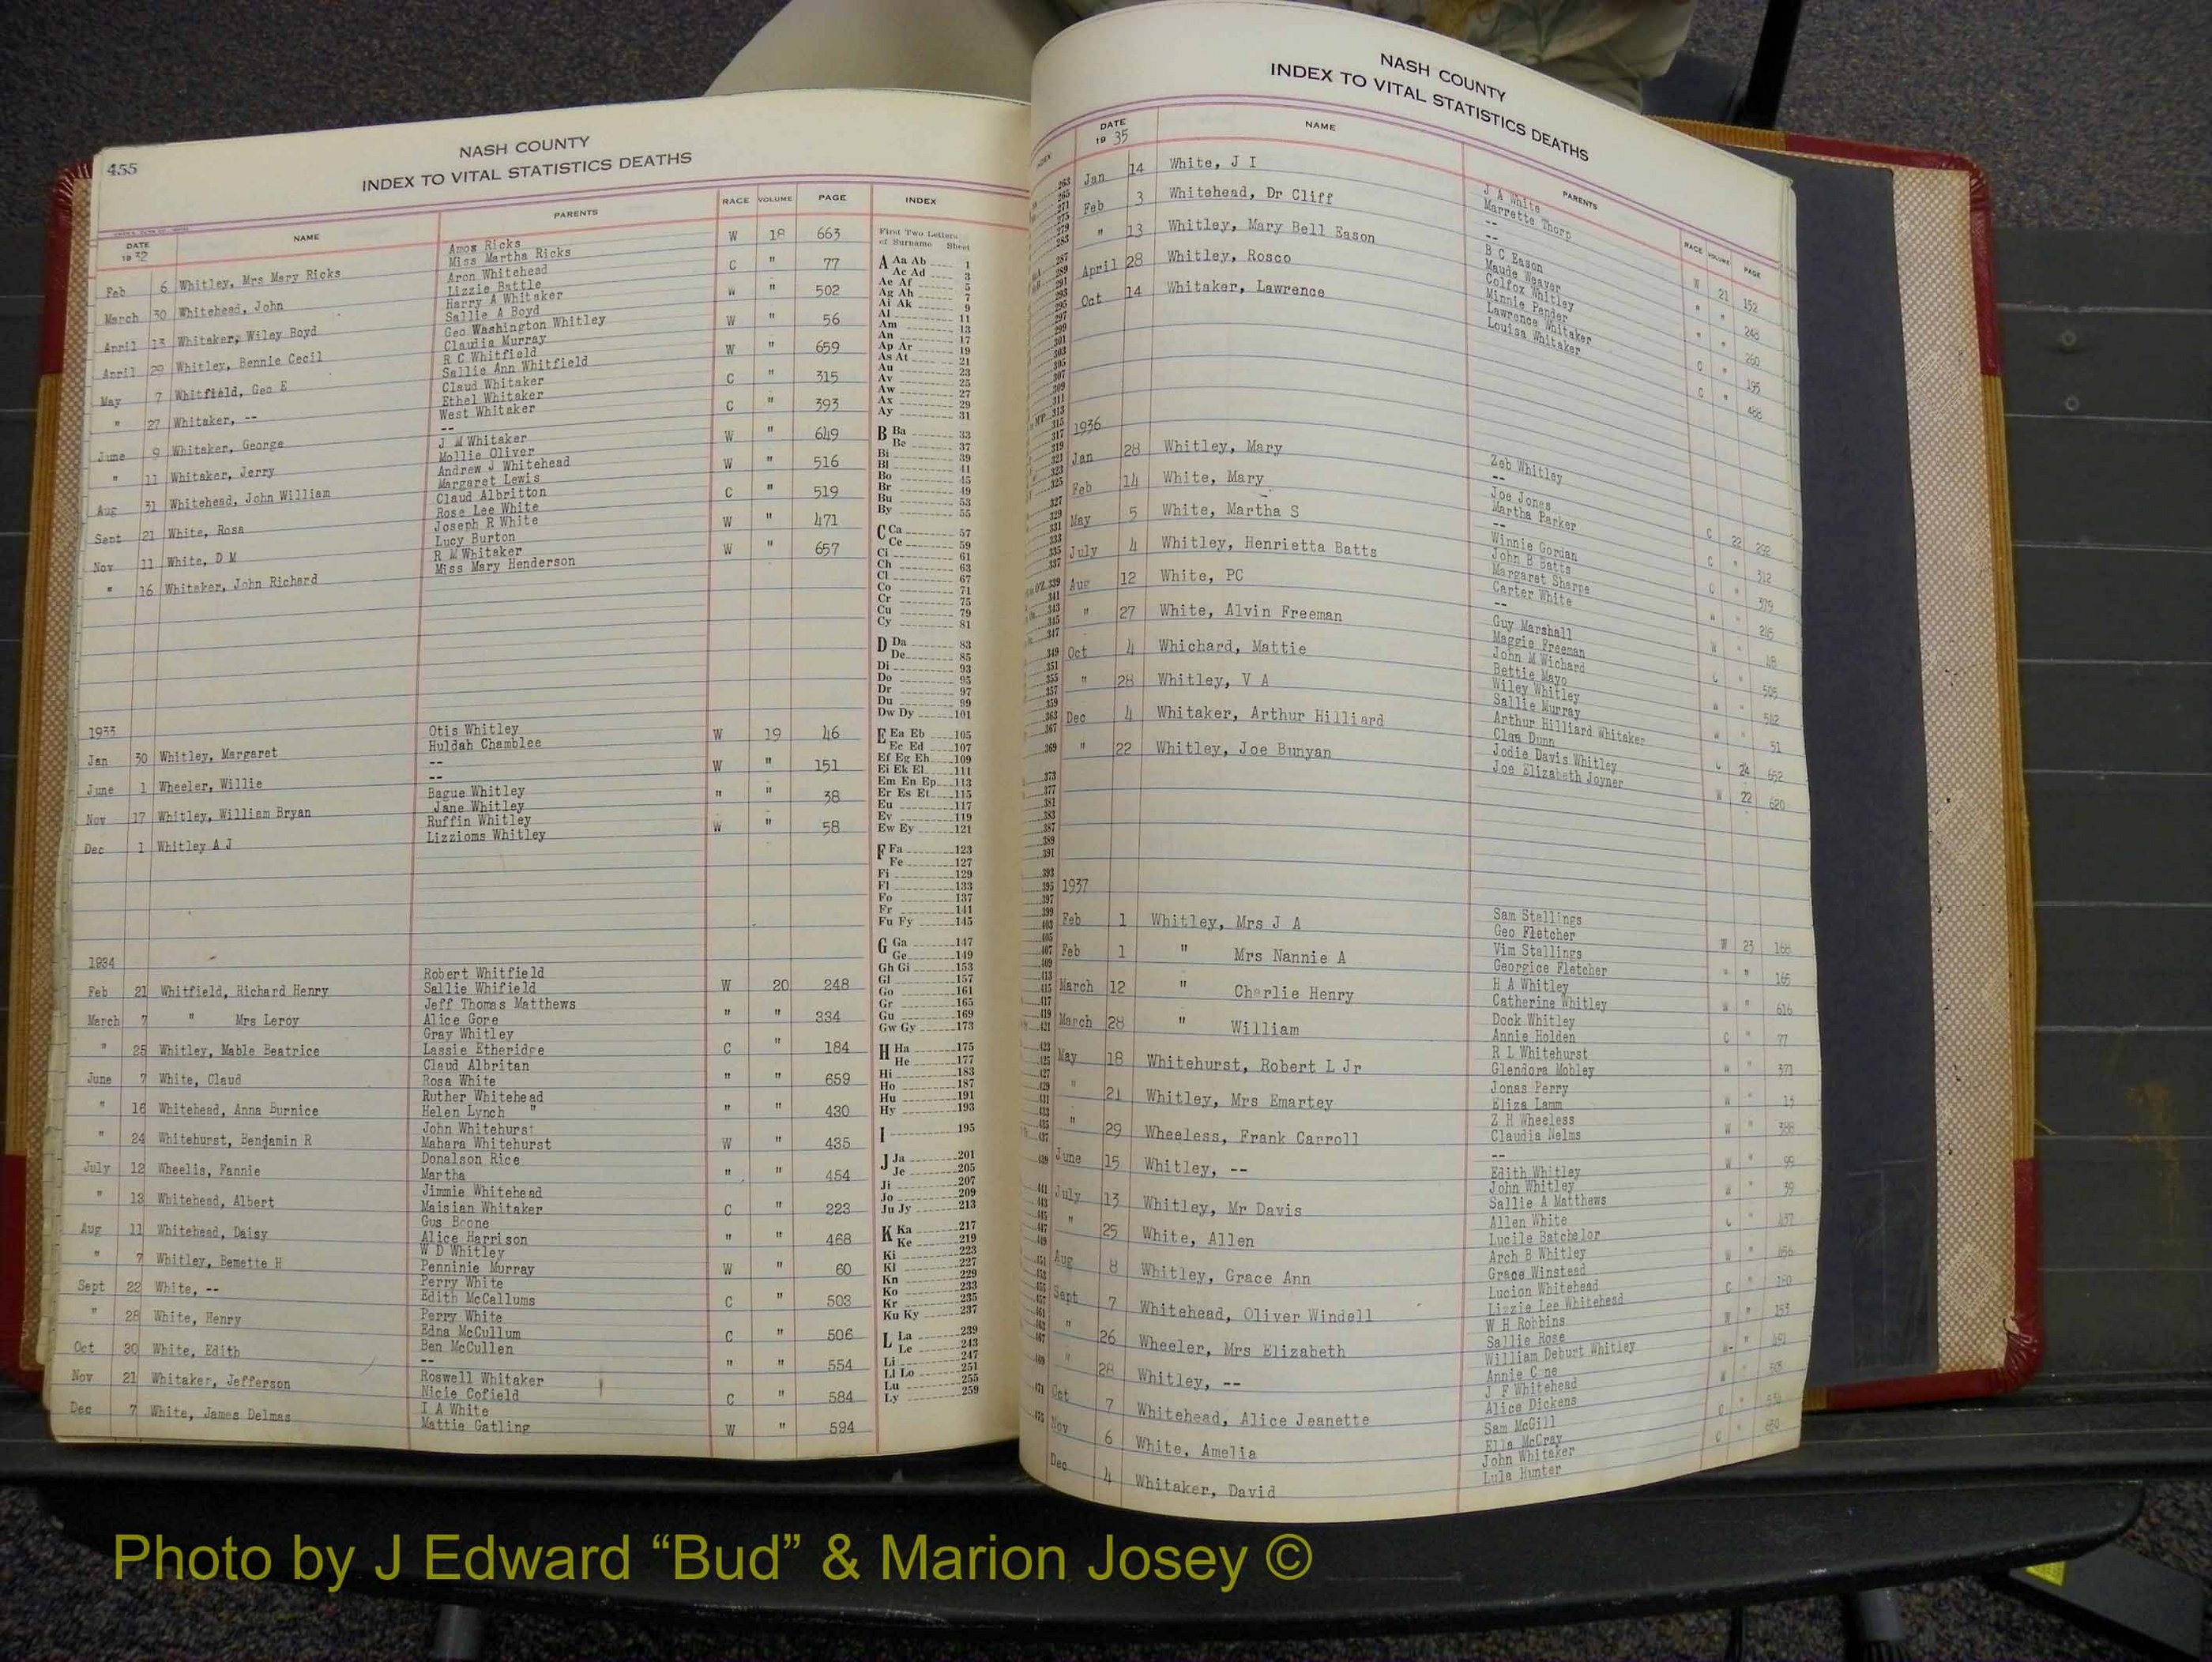 455
NASH COUNTY
INDEX TO VITAL STATISTICS DEATHS
DATE 1932 NAME PARENTS RACE VOLUME PAGE INDEX
Feb 6 Whitley, Mrs Mary Ricks Amos Ricks W 18 663
Miss Martha Ricks
March 30 Whitehead, John Aron Whitehead C " 77
Lizzie Battle
April 13 Whitaker, Wiley Boyd Harry A Whitaker W " 502
Sallie A Boyd
April 29 Whitley, Bennie Cecil Geo Washington Whitley W " 56
Claudia Murray
May 7 Whitfield, Geo E R C Whitfield W " 659
Sallie Ann Whitfield
" 27 Whitaker, -- Claud Whitaker C " 315
Ethel Whitaker
June 9 Whitaker, George West Whitaker C " 393
--
" 11 Whitaker, Jerry J M Whitaker W " 649
Mollie Oliver
Aug 31 Whitehead, John William Andrew J Whitehead W " 516
Margaret Lewis
Sept 21 White, Rosa Claud Albritton C " 519
Rose Lee White
Nov 11 White, D M Joseph R White W " 471
Lucy Burton
" 16 Whitaker, John Richard R M Whitaker W " 657
Miss Mary Henderson
1933
Jan 30 Whitley, Margaret Otis Whitley W 19 46
Huldah Chamblee
June 1 Wheeler, Willie -- W " 151
--
Nov 17 Whitley, William Bryan Bague Whitley " " 38
Jane Whitley
Dec 1 Whitley A J Ruffin Whitley W " 58
Lizzioms Whitley
1934
Feb 21 Whitfield, Richard Henry Robert Whitfield W 20 248
Sallie Whifield
March 7 " Mrs Leroy Jeff Thomas Matthews " " 334
Alice Gore
" 25 Whitley, Mable Beatrice Gray Whitley C " 184
Lassie Etheridge
June 7 White, Claud Claud Albritan " " 659
Rosa White
" 16 Whitehead, Anna Burnice Ruther Whitehead " " 430
Helen Lynch "
" 24 Whitehurst, Benjamin R John Whitehurst W " 435
Mahara Whitehurst
July 12 Wheelis, Fannie Donalson Rice " " 454
Martha
" 13 Whitehead, Albert Jimmie Whitehead C " 223
Maisian Whitaker
Aug 11 Whitehead, Daisy Gus Boone " " 468
Alice Harrison
" 7 Whitley, Bemette H W D Whitley W " 60
Penninie Murray
Sept 22 White, -- Perry White C " 503
Edith McCallums
" 28 White, Henry Perry White C " 506
Edna McCullum
Oct 30 White, Edith Ben McCullen " " 554
--
Nov 21 Whitaker, Jefferson Roswell Whitaker C " 584
Nicie Cofield
Dec 7 White, James Delmas I A White W " 594
Mattie Gatling
First Two Letters
of Surname Sheet
A Aa Ab 1
Ac Ad 3
Ae Af 5
Ag Ah 7
Ai Ak 9
Al 11
Am 13
An 17
Ap Ar 19
As At 21
Au 23
Av 25
Aw 27
Ax 29
Ay 31
B Ba 33
Be 37
Bi 39
Bl 41
Bo 45
Br 49
Bu 53
By 55
C Ca 57
Ce 59
Ci 61
Ch 63
Cl 67
Co 71
Cr 75
Cu 79
Cy 81
D Da 83
De 85
Di 93
Do 95
Dr 97
Du 99
Dw Dy 101
E Ea Eb 105
Ec Ed 107
Ef Eg Eh 109
Ei Ek El 111
Em En Ep 113
Er Es Et 115
Eu 117
Ev 119
Ew Ey 121
F Fa 123
Fe 127
Fi 129
Fl 133
Fo 137
Fr 141
Fu Fy 145
G Ga 147
Ge 149
Gh Gi 153
Gl 157
Go 161
Gr 165
Gu 169
Gw Gy 173
H Ha 175
He 177
Hi 183
Ho 187
Hu 191
Hy 193
I 195
J Ja 201
Je 205
Ji 207
Jo 209
Ju Jy 213
K Ka 217
Ke 219
Ki 223
Kl 227
Kn 229
Ko 233
Kr 235
Ku Ky 237
L La 239
Le 243
Li 247
Ll Lo 251
Lu 255
Ly 259
NASH COUNTY
INDEX TO VITAL STATISTICS DEATHS
DATE 1935 NAME PARENTS RACE VOLUME PAGE
Jan 14 White, J I J A White W 21 152
Marrette Thorp
Feb 3 Whitehead, Dr Cliff -- " " 248
--
" 13 Whitley, Mary Bell Eason B C Eason " " 260
Maude Weaver
April 28 Whitley, Rosco Colfox Whitley C " 195
Minnie Pander
Oct 14 Whitaker, Lawrence Lawrence Whitaker C " 488
Louisa Whitaker
1936
Jan 28 Whitley, Mary Zeb Whitley C 22 292
--
Feb 14 White, Mary Joe Jones C " 312
Martha Parker
May 5 White, Martha S -- C " 379
Winnie Gordan
July 4 Whitley, Henrietta Batts John B Batts W " 245
Margaret Sharpe
Aug 12 White, PC Carter White W " 48
--
" 27 White, Alvin Freeman Guy Marshall C " 505
Maggie Freeman
Oct 4 Whichard, Mattie John M Wichard W " 542
Bettie Mayo
" 28 Whitley, V A Wiley Whitley W " 51
Sallie Murray
Dec 4 Whitaker, Arthur Hilliard Arthur Hilliard Whitaker C 24 652
Claa Dunn
" 22 Whitley, Joe Bunyan Jodie Davis Whitley W 22 620
Joe Elizabeth Joyner
1937
Feb 1 Whitley, Mrs J A Sam Stallings W 23 168
Geo Fletcher
Feb 1 " Mrs Nannie A Vim Stallings " " 165
Georgice Fletcher
March 12 " Charlie Henry H A Whitley W " 616
Catherine Whitley
March 28 " William Dock Whitley C " 77
Annie Holden
May 18 Whitehurst, Robert L Jr R L Whitehurst W " 371
Glendora Mobley
" 21 Whitley, Mrs Emartey Jonas Perry W " 13
Eliza Lamm
" 29 Wheeless, Frank Carroll Z H Wheeless W " 388
Claudia Nelms
June 15 Whitley, -- -- W " 99
Edith Whitley
July 13 Whitley, Mr Davis John Whitley W " 39
Sallie A Matthews
" 25 White, Allen Allen White C " 437
Lucile Batchelor
Aug 8 Whitley, Grace Ann Arch B Whitley W " 456
Grace Winstead
Sept 7 Whitehead, Oliver Windell Lucion Whitehead C " 180
Lizzie Lee Whitehead
" 26 Wheeler, Mrs Elizabeth W H Robbins W " 153
Sallie Rose
" 28 Whitley, -- William Deburt Whitley W "
Annie C ne
Oct 7 Whitehead, Alice Jeanette J F Whitehead W "
Alice Dickens
Nov 6 White, Amelia Sam McGill C "
Ella McCray
Dec 4 Whitaker, David John Whitaker C "
Lula Hunter
Photo by J Edward “Bud” & Marion Josey ©